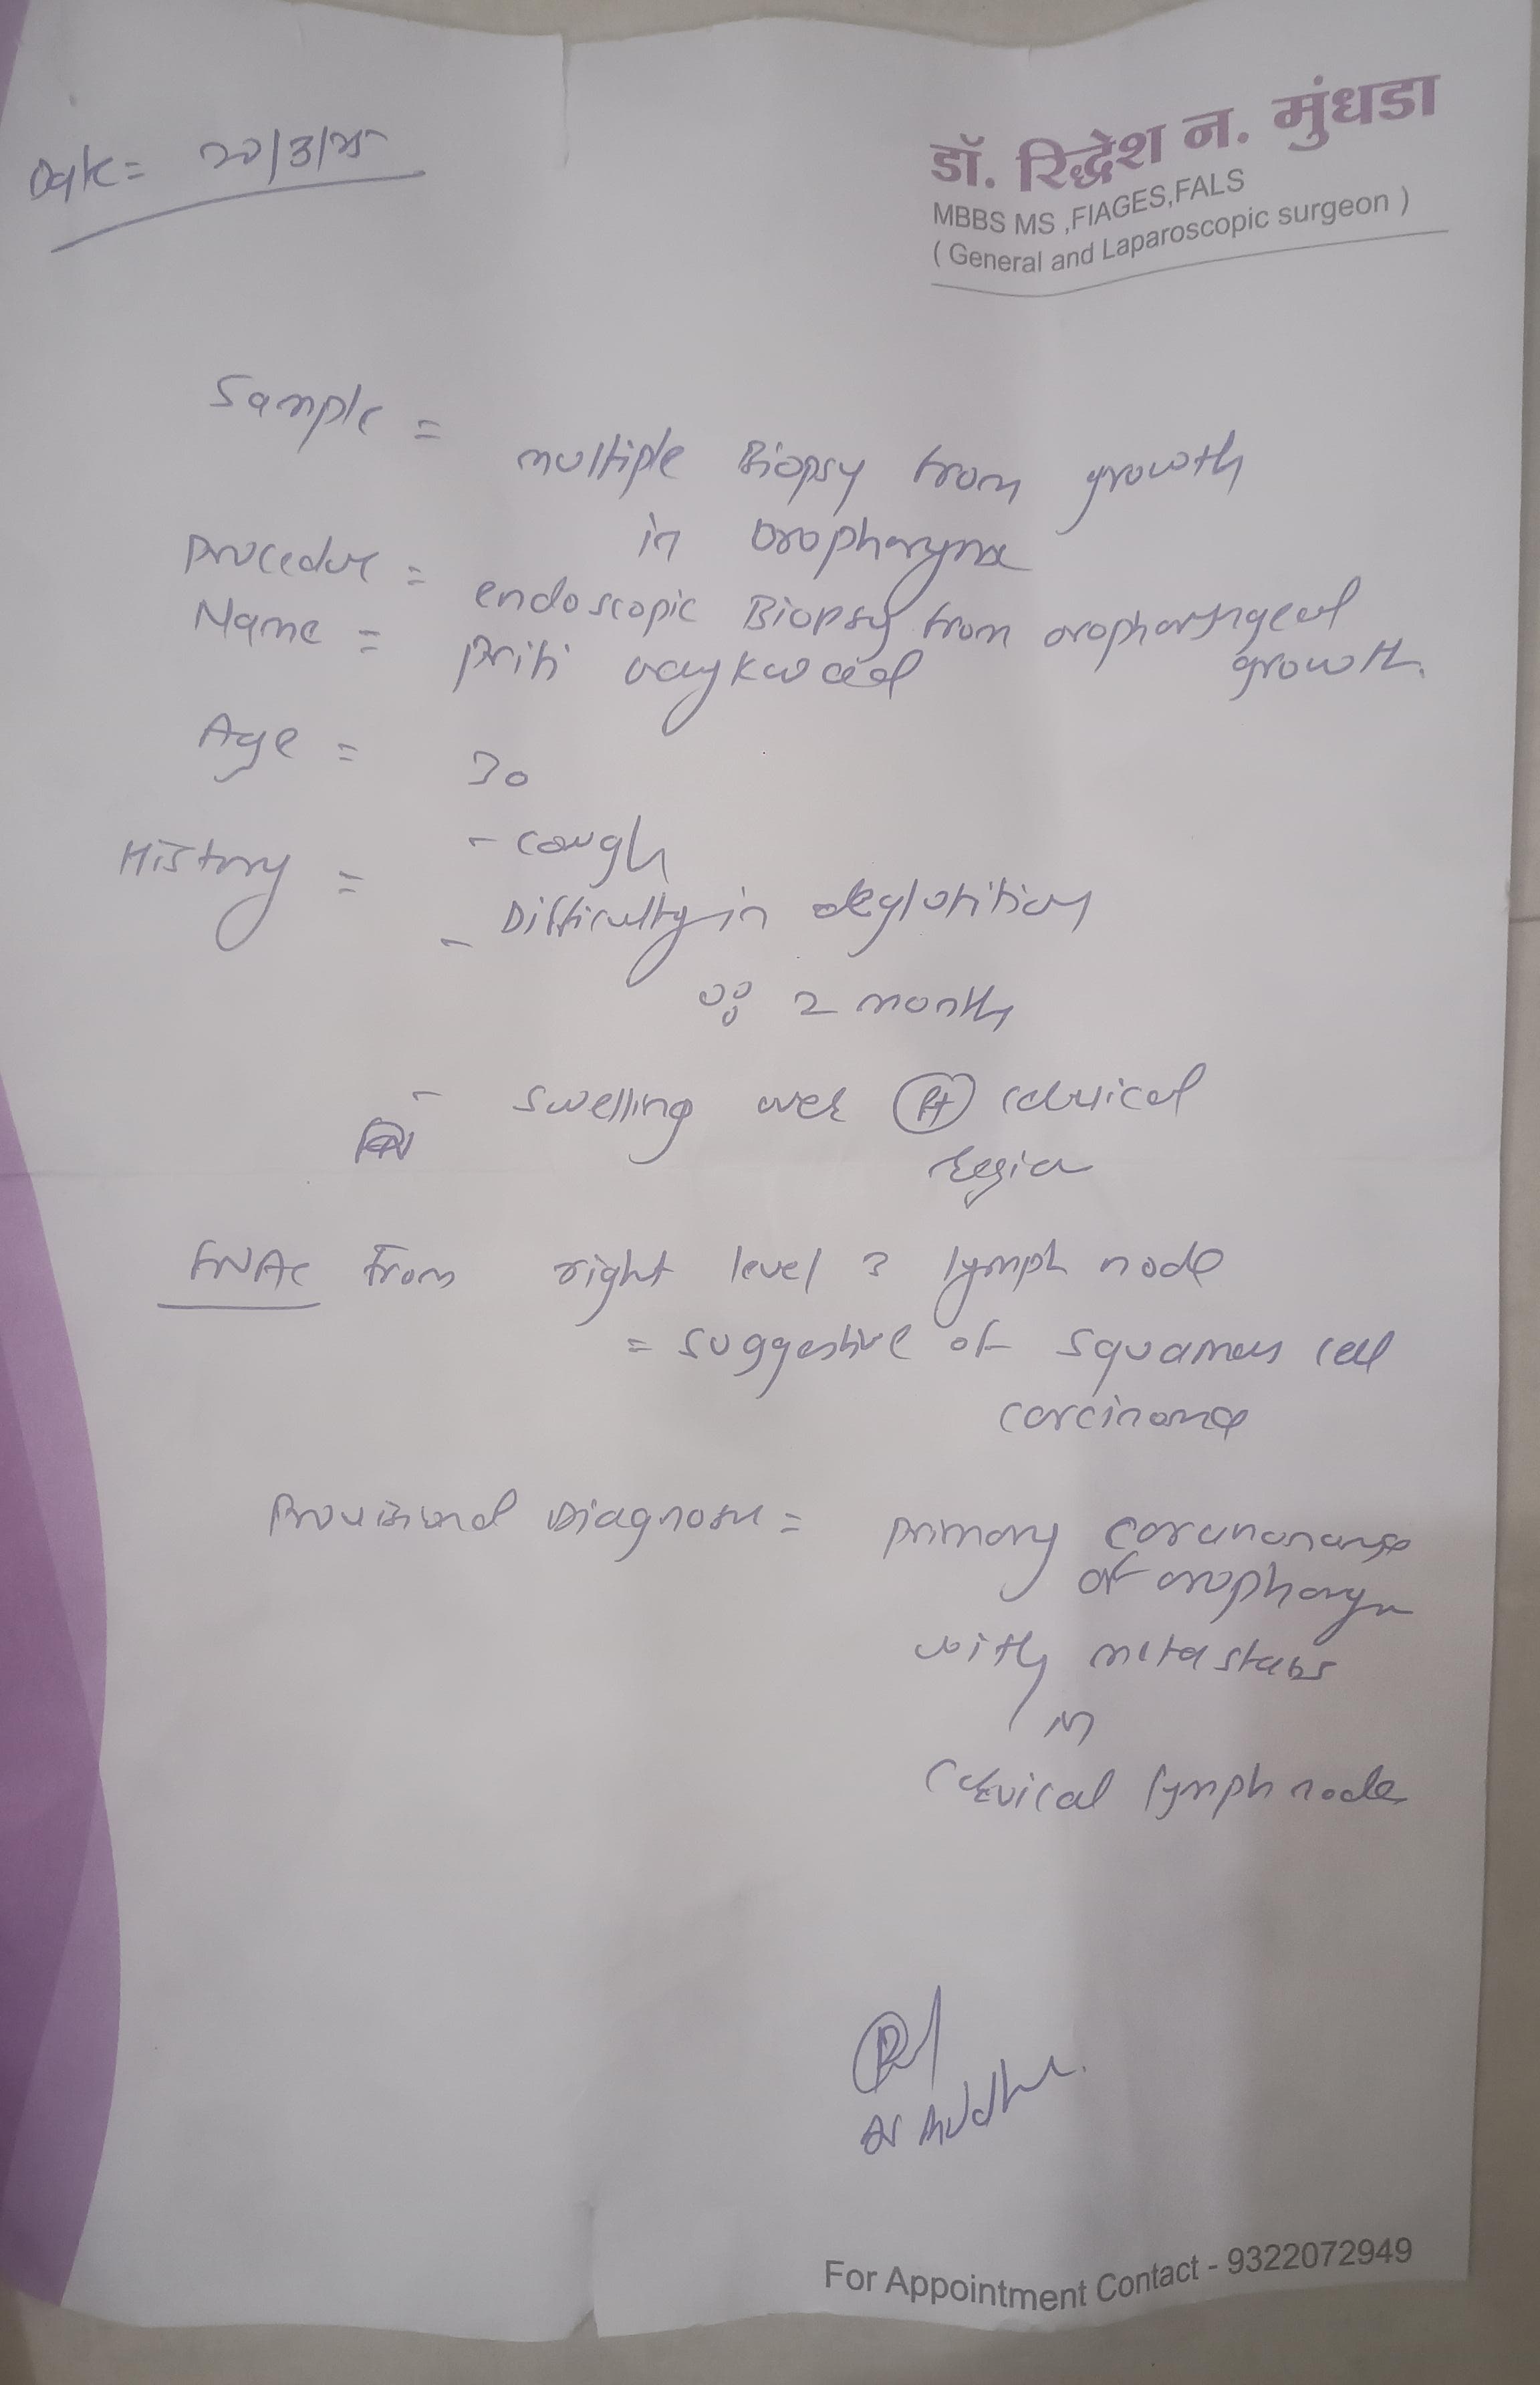 Date = 20/3/25
डॉ. रिद्धेश न. मुंधडा
MBBS MS ,FIAGES,FALS
( General and Laparoscopic surgeon )
Sample = multiple Biopsy from growth
in oropharynx
Procedure = endoscopic Biopsy from oropharyngeal
growth.
Name = Priti
Age = 30
History = - cough
- Difficulty in deglutition
2 month
- swelling over Rt cervical
region
FNAC From right level 3 lymph node
= suggestive of squamous cell
carcinoma
Provisional Diagnosis = primary carcinoma
of oropharynx
with metastasis
in
cervical lymph node
For Appointment Contact - 9322072949